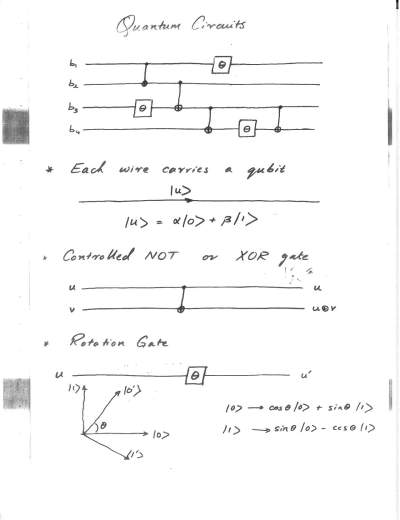 Quantum Circuits
b₁
θ
b₂
b₃
θ
b₄
θ
* Each wire carries a qubit
|u>
|u> = α|0> + β|1>
· Controlled NOT or XOR gate
u u
v u⊕v
* Rotation Gate
u θ u'
|1> |0'>
|0> → cosθ|0> + sinθ|1>
θ |0>
|1> → sinθ|0> - cosθ|1>
|1'>